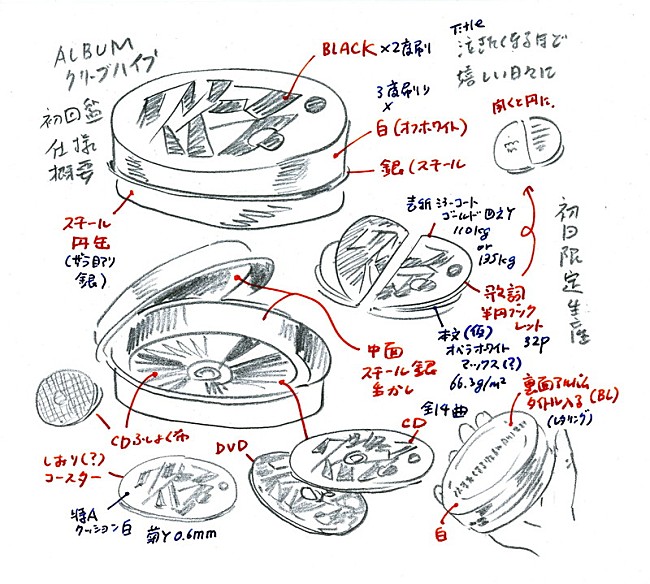 ALBUM
クリープハイプ
初回盤
仕様
概要
BLACK ×2度刷り
3度刷り
×
白(オフホワイト)
銀(スチール
Title
泣きたくなるほど
嬉しい日々に
開くと円に.
初回限定生産
スチール
円缶
(ザラ目アリ
銀)
表紙 ミラーコート
ゴールド 四六Y
110kg
or
135kg
歌詞
半円ブック
レット
32P
本文(仮)
オペラホワイト
マックス(?)
66.3g/m²
全14曲
中面
スチール銀
生かし
CDふしょく布
しおり(?)
コースター
特A
クッション白 菊Y 0.6mm
DVD
CD
裏面アルバム
タイトル入る(BL)
(レタリング)
白